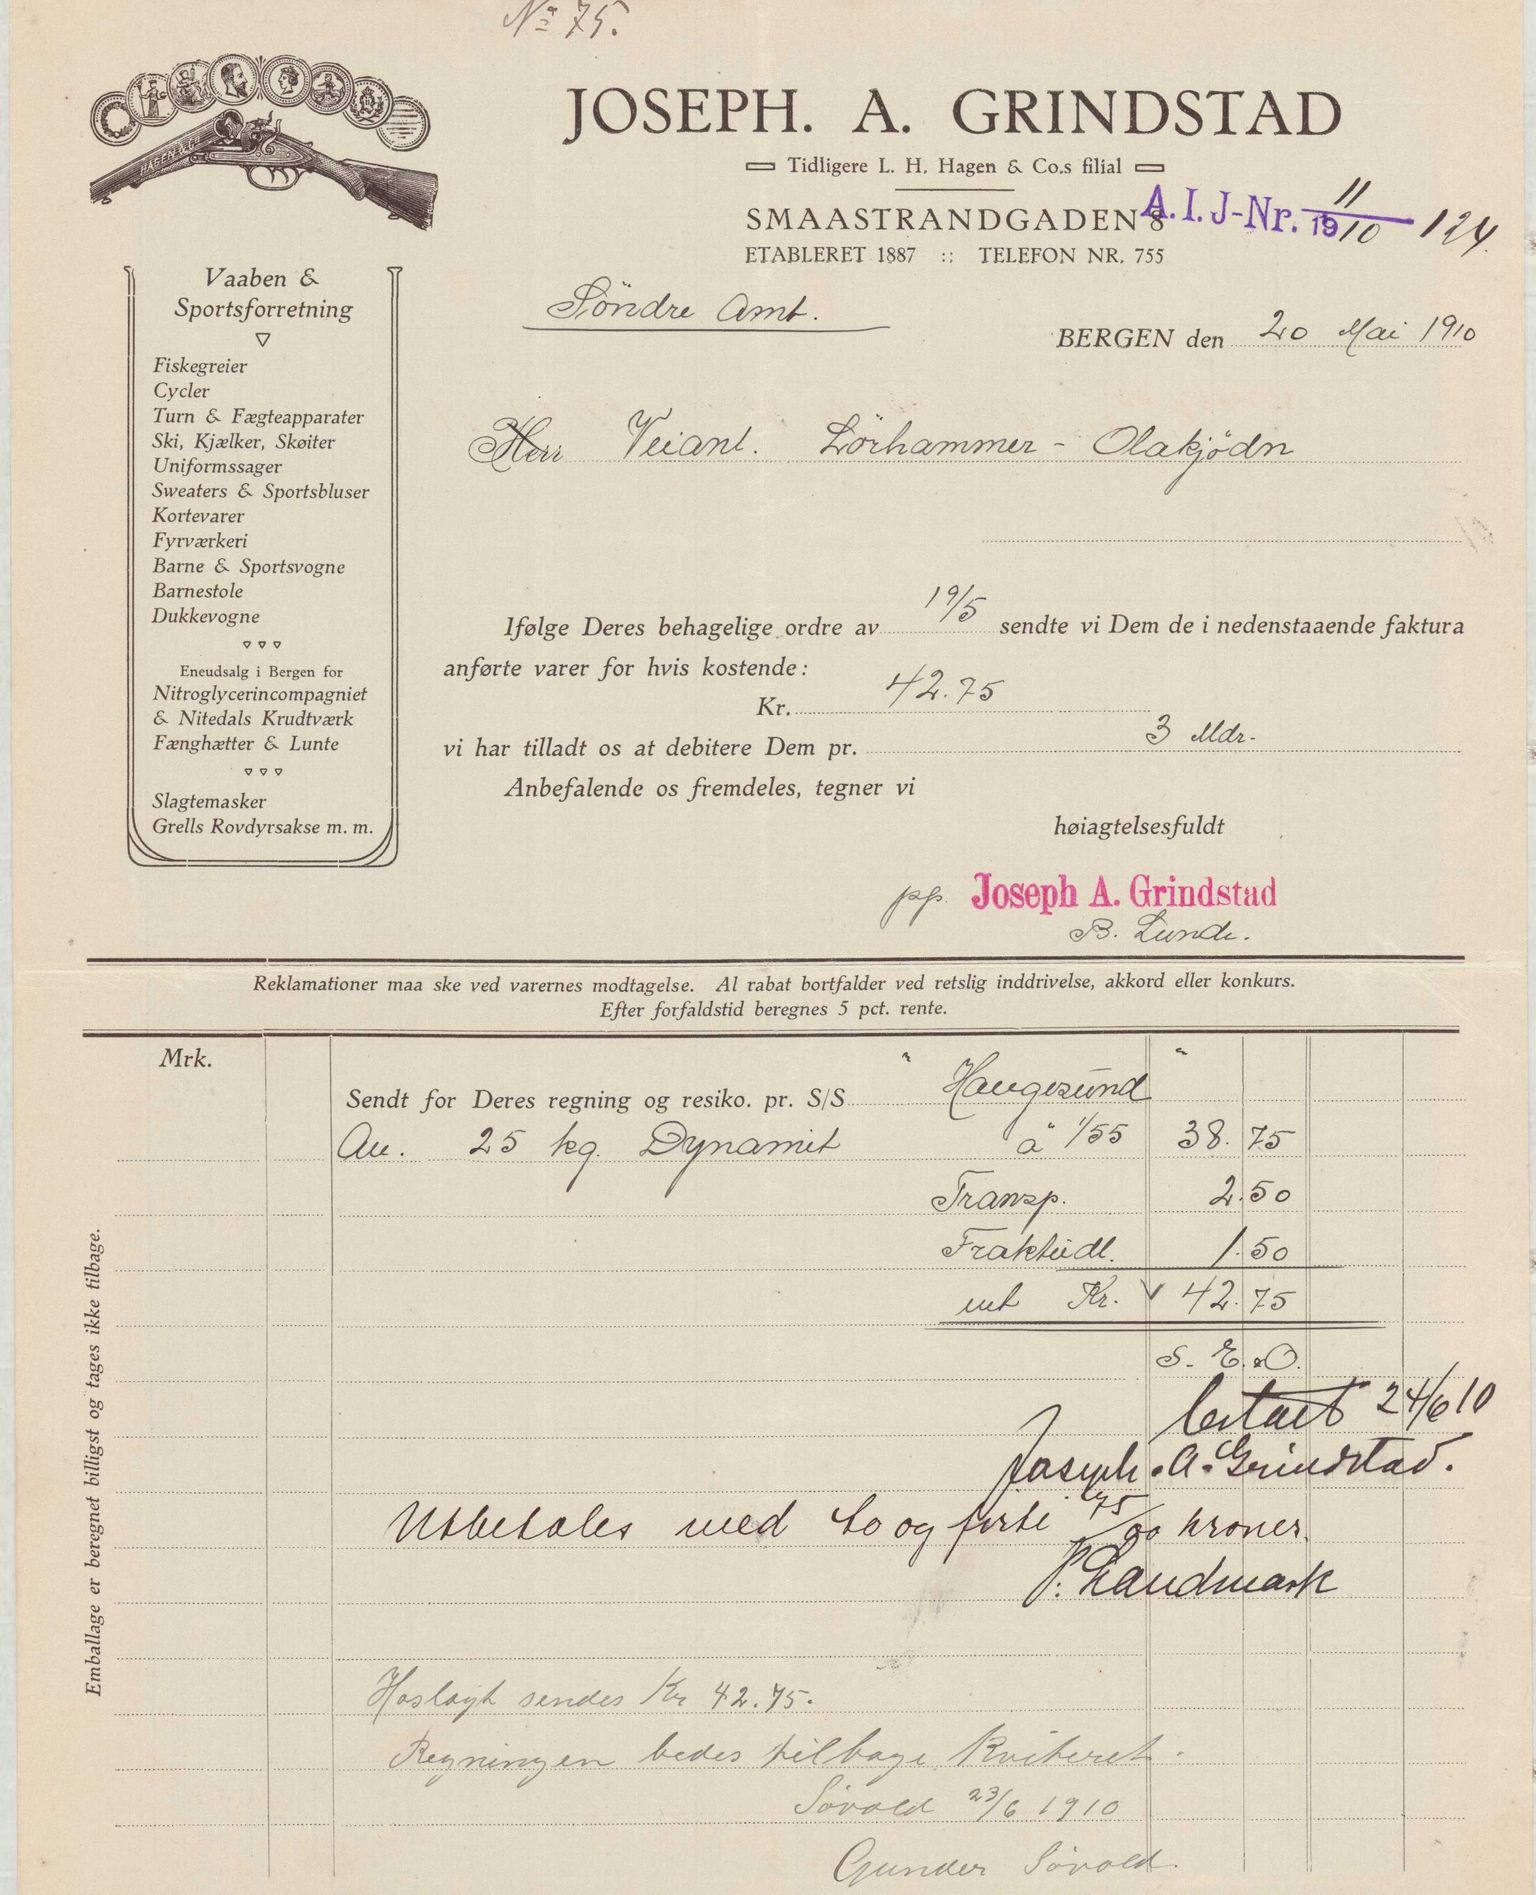 No 75.
HAGEN & Co
JOSEPH. A. GRINDSTAD
Tidligere L. H. Hagen & Co.s filial
SMAASTRANDGADEN 8
A. I. J-Nr. 11/1910 124
ETABLERET 1887 :: TELEFON NR. 755
Söndre Amt.
BERGEN den 20 Mai 1910
Vaaben &
Sportsforretning
Fiskegreier
Cycler
Turn & Fægteapparater
Ski, Kjælker, Skøiter
Uniformssager
Sweaters & Sportsbluser
Kortevarer
Fyrværkeri
Barne & Sportsvogne
Barnestole
Dukkevogne
Eneudsalg i Bergen for
Nitroglycerincompagniet
& Nitedals Krudtværk
Fænghætter & Lunte
Slagtemasker
Grells Rovdyrsakse m. m.
Herr Veiant. Lörhammer - Olakjödn
Ifølge Deres behagelige ordre av 19/5 sendte vi Dem de i nedenstaaende faktura
anførte varer for hvis kostende:
Kr. 42.75
vi har tilladt os at debitere Dem pr. 3 Mdr.
Anbefalende os fremdeles, tegner vi
høiagtelsesfuldt
pp. Joseph A. Grindstad
B. Lunde.
Reklamationer maa ske ved varernes modtagelse. Al rabat bortfalder ved retslig inddrivelse, akkord eller konkurs.
Efter forfaldstid beregnes 5 pct. rente.
Mrk.
Sendt for Deres regning og resiko. pr. S/S " Haugesund "
An. 25 kg. Dynamit à 1/55 38.75
Transp. 2.50
Fraktudl. 1.50
net Kr. 42.75
S. E. & O.
betalt 24/6 10
Joseph. A. Grindstad.
Utbetales med to og förti 75/00 kroner.
P. Landmark
Hoslagt sendes Kr 42.75.
Regningen bedes tilbage Kviteret.
Sövold 23/6 1910
Gunder Sövold.
Emballage er beregnet billigst og tages ikke tilbage.